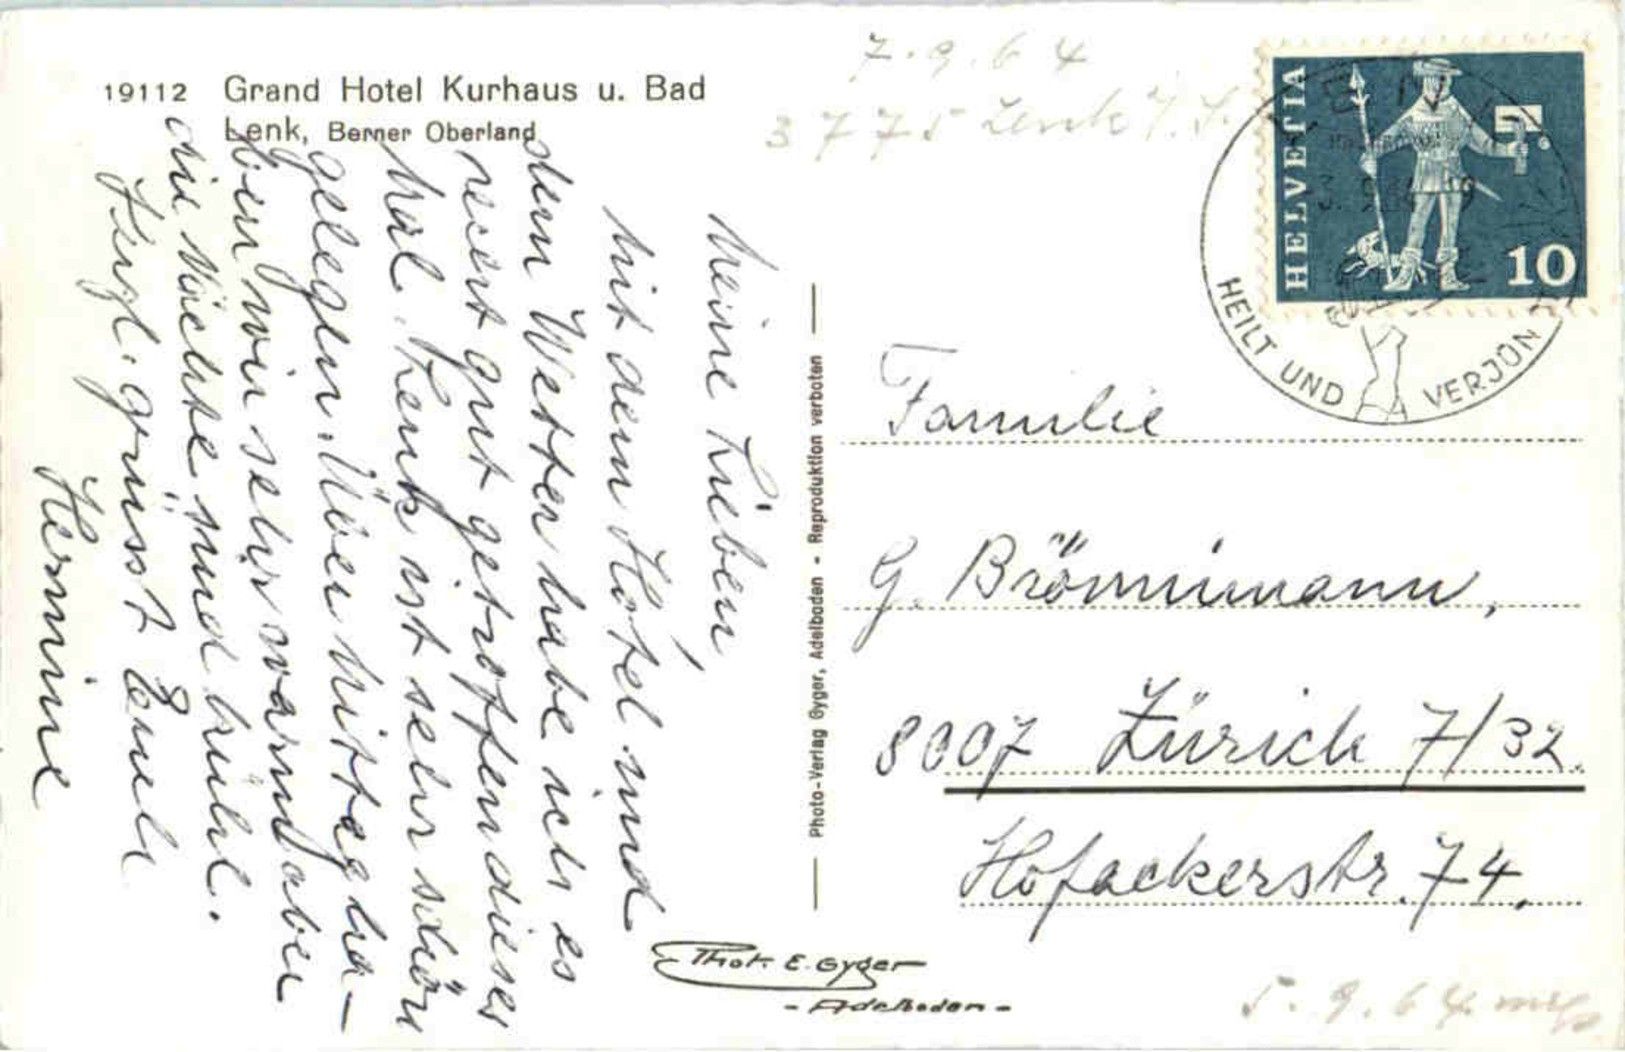 19112 Grand Hotel Kurhaus u. Bad
Lenk, Berner Oberland
7.9.64
3775 Lenk
HELVETIA
10
HEILT UND VERJÜN
Meine Lieben,
Mit dem Hotel und
dem Wetter habe ich es
recht gut getroffen dieses
Mal. Lenk ist sehr schön
gelegen. Über Mittag ha-
ben wir sehr warm aber
die Nächte sind kühl.
Herzl. grüsst Euch
Hermine
Photo-Verlag Gyger, Adelboden - Reproduktion verboten
Familie
G. Brönnimann,
8007 Zürich 7/32.
Hofackerstr. 74.
Phot. E. Gyger
- Adelboden -
5.9.64